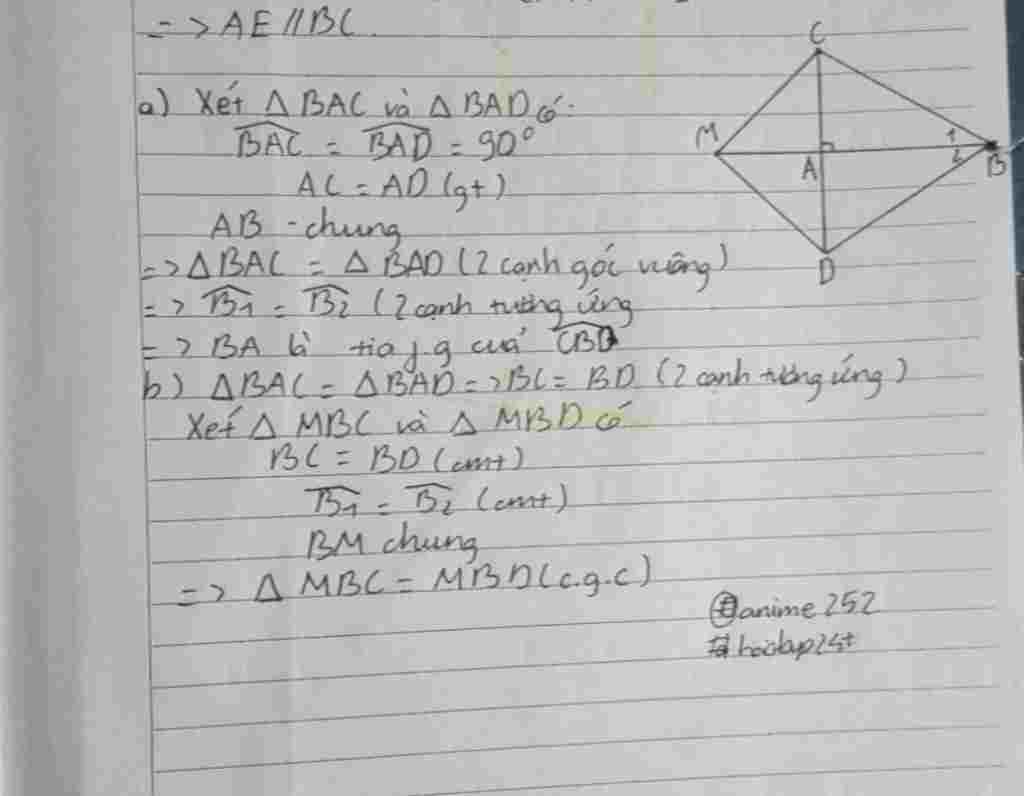 => AE // BC
a) Xét △ BAC và △ BAD có:
BAC = BAD = 90°
AC = AD (gt)
AB - chung
=> △ BAC = △ BAD (2 cạnh góc vuông)
=> B1 = B2 (2 cạnh tương ứng
=> BA là tia p.g của CBD
b) △ BAC = △ BAD => BC = BD (2 cạnh tương ứng)
Xét △ MBC và △ MBD có
BC = BD (cmt)
B1 = B2 (cmt)
BM chung
=> △ MBC = MBD (c.g.c)
anime 252
C
M
A
1
2
B
D